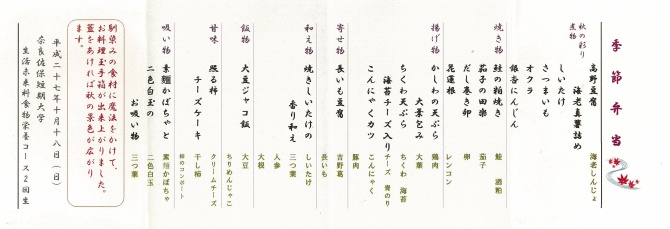 季節弁当
秋の彩り
煮物
高野豆腐
海老真薯詰め
海老しんじょ
しいたけ
さつまいも
オクラ
銀杏にんじん
焼き物
鮭の粕焼き
鮭 酒粕
茄子の田楽
茄子
だし巻き卵
卵
花蓮根
レンコン
揚げ物
かしわの天ぷら
鶏肉
大葉包み
大葉
ちくわ天ぷら
ちくわ 海苔
海苔チーズ入り
チーズ 青のり
こんにゃくカツ
こんにゃく
豚肉
寄せ物
長いも豆腐
吉野葛
長いも
和え物
焼きしいたけの
しいたけ
香り和え
三つ葉
人参
大根
飯物
大豆ジャコ飯
大豆
ちりめんじゃこ
甘味
チーズケーキ
クリームチーズ
照る柿
干し柿
柿のコンポート
吸い物
素麺かぼちゃと
素麺かぼちゃ
二色白玉の
二色白玉
お吸い物
三つ葉
馴染みの食材に魔法をかけて、
お料理玉手箱が出来上がりました。
蓋をあければ秋の景色が広がり
ます。
平成二十七年十月十八日(日)
奈良佐保短期大学
生活未来科食物栄養コース2回生